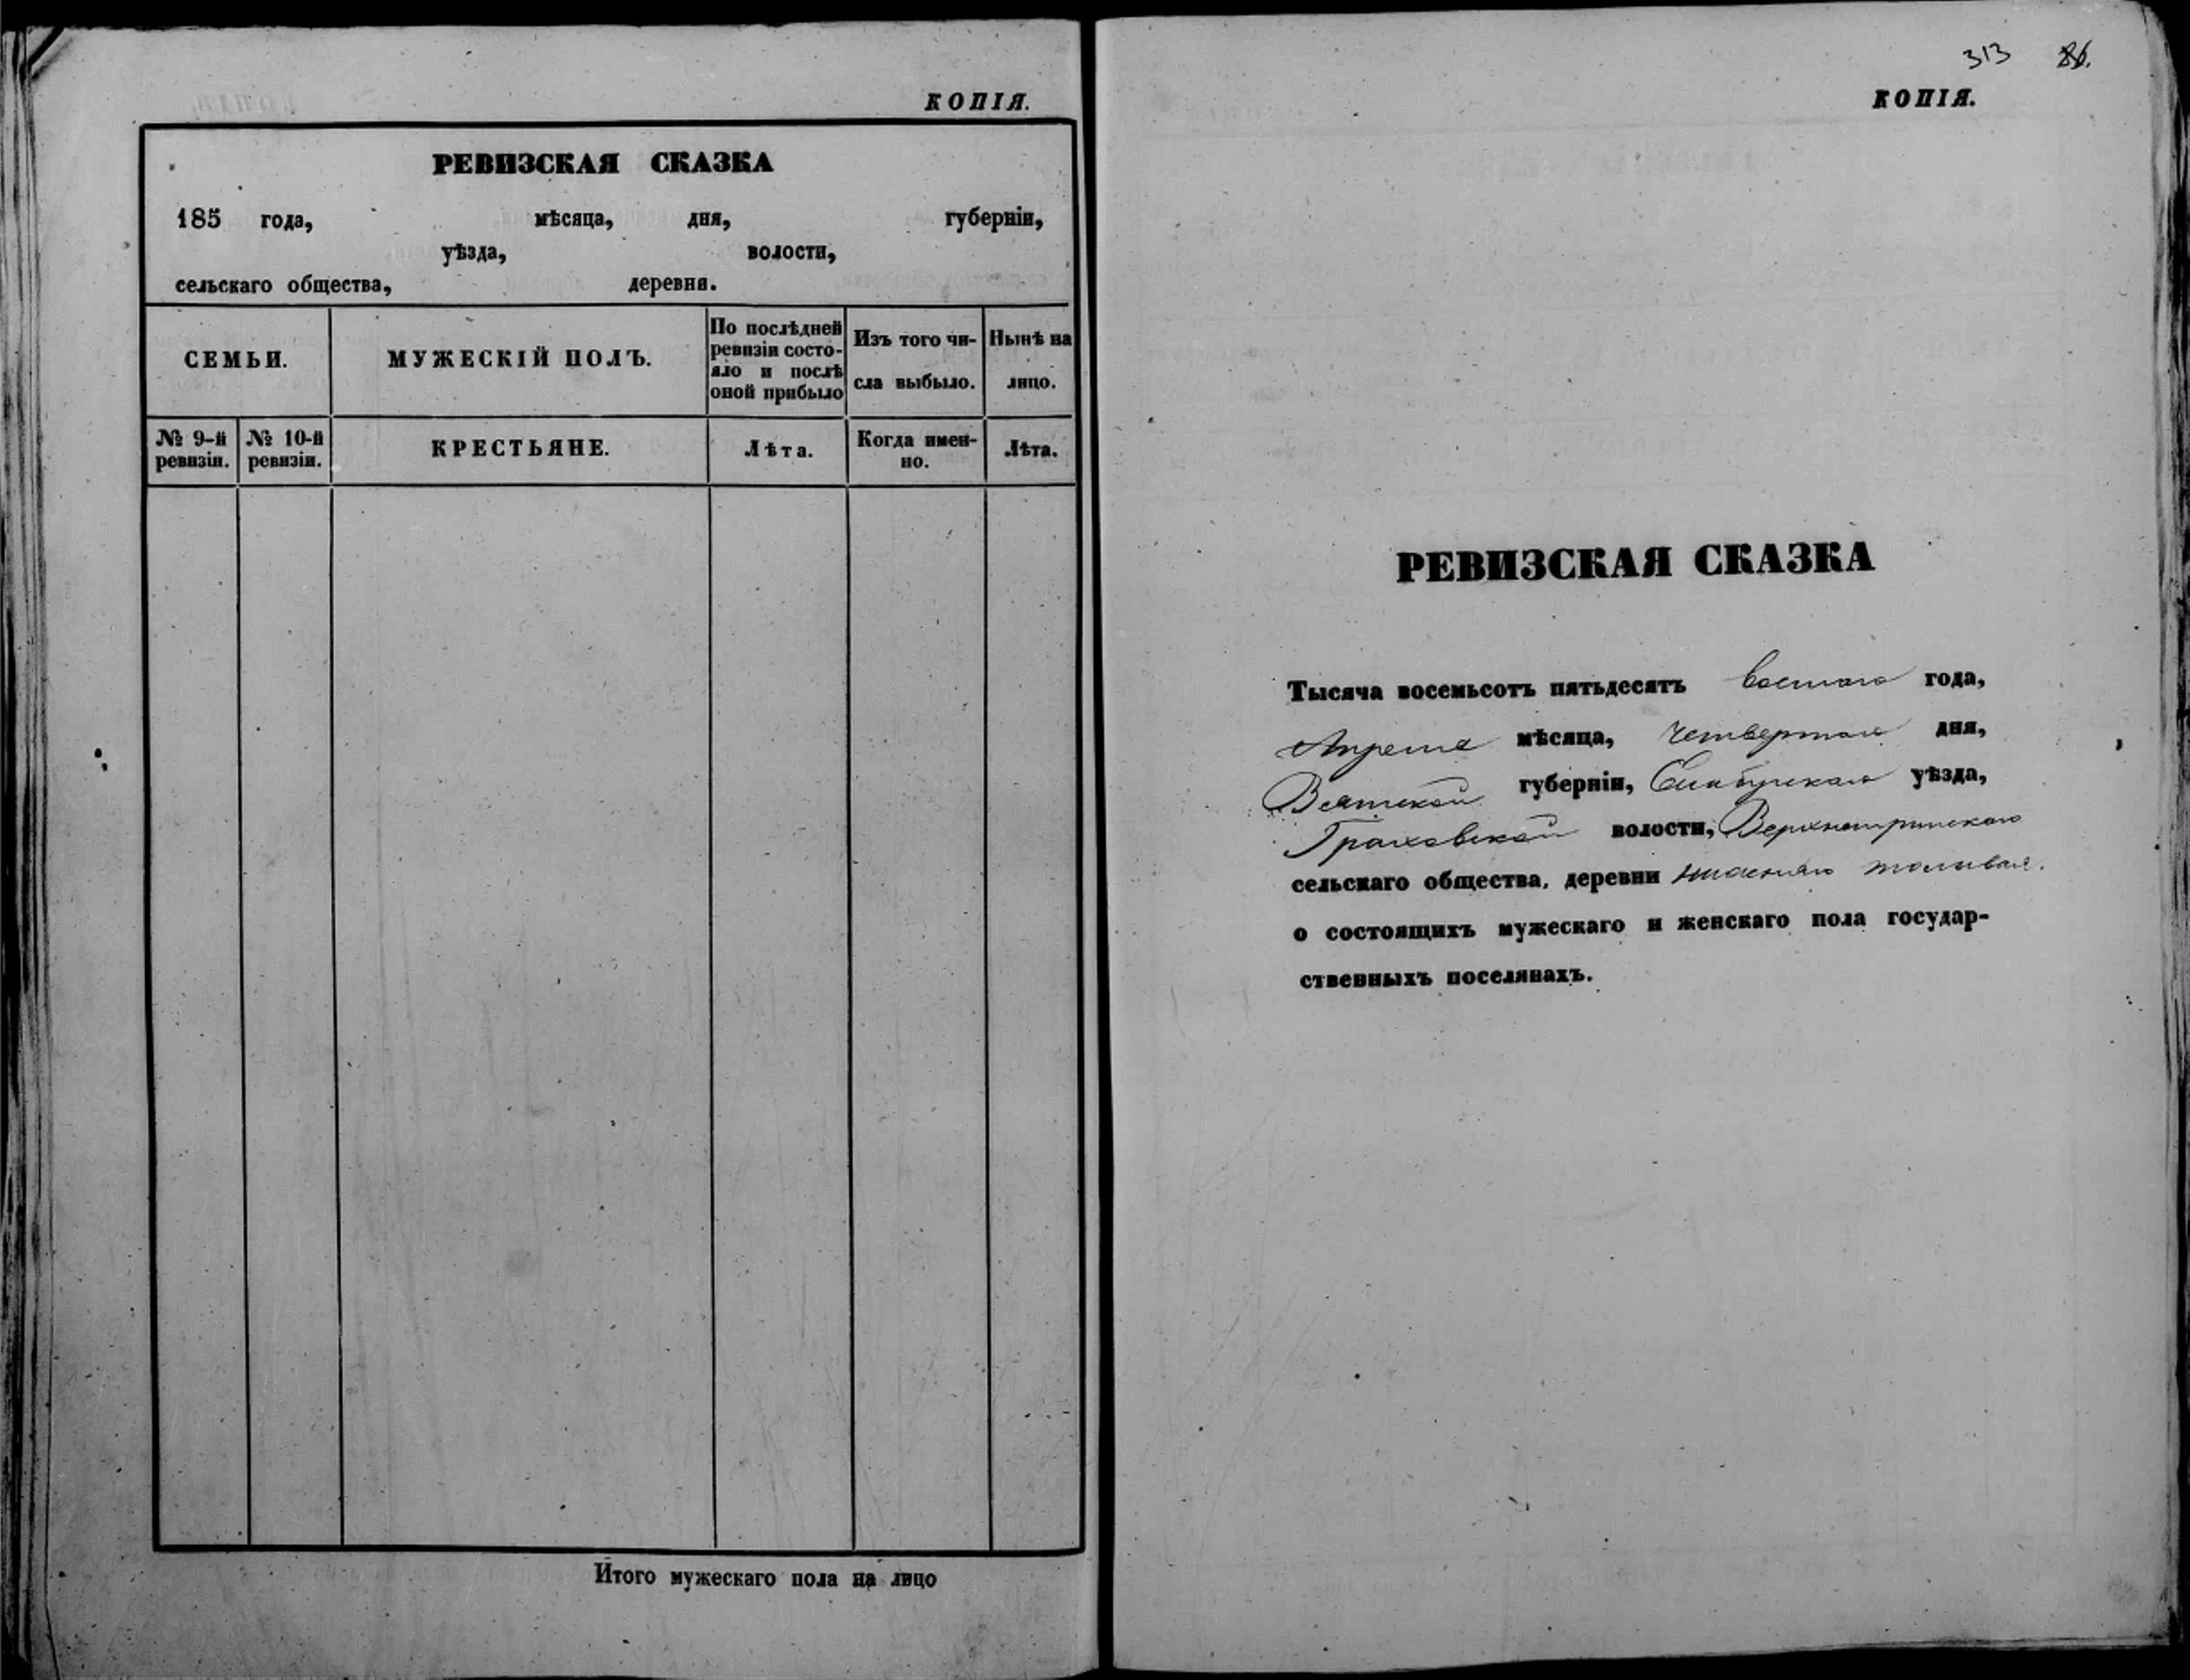 КОПІЯ.
РЕВИЗСКАЯ СКАЗКА
185 года, мѣсяца, дня, губерніи,
уѣзда, волости,
сельскаго общества, деревни.
СЕМЬИ.
МУЖЕСКІЙ ПОЛЪ.
По послѣдней
ревизіи состо-
яло и послѣ
оной прибыло
Изъ того чи-
сла выбыло.
Нынѣ на
лицо.
№ 9-й
ревизіи.
№ 10-й
ревизіи.
КРЕСТЬЯНЕ.
Лѣта.
Когда имен-
но.
Лѣта.
Итого мужескаго пола на лицо
313
КОПІЯ.
РЕВИЗСКАЯ СКАЗКА
Тысяча восемьсотъ пятьдесятъ восмаго года,
Апреля мѣсяца, четвертаго дня,
Вятской губерніи, Елабужскаго уѣзда,
Граховской волости,
сельскаго общества, деревни
о состоящихъ мужескаго и женскаго пола государ-
ственныхъ поселянахъ.